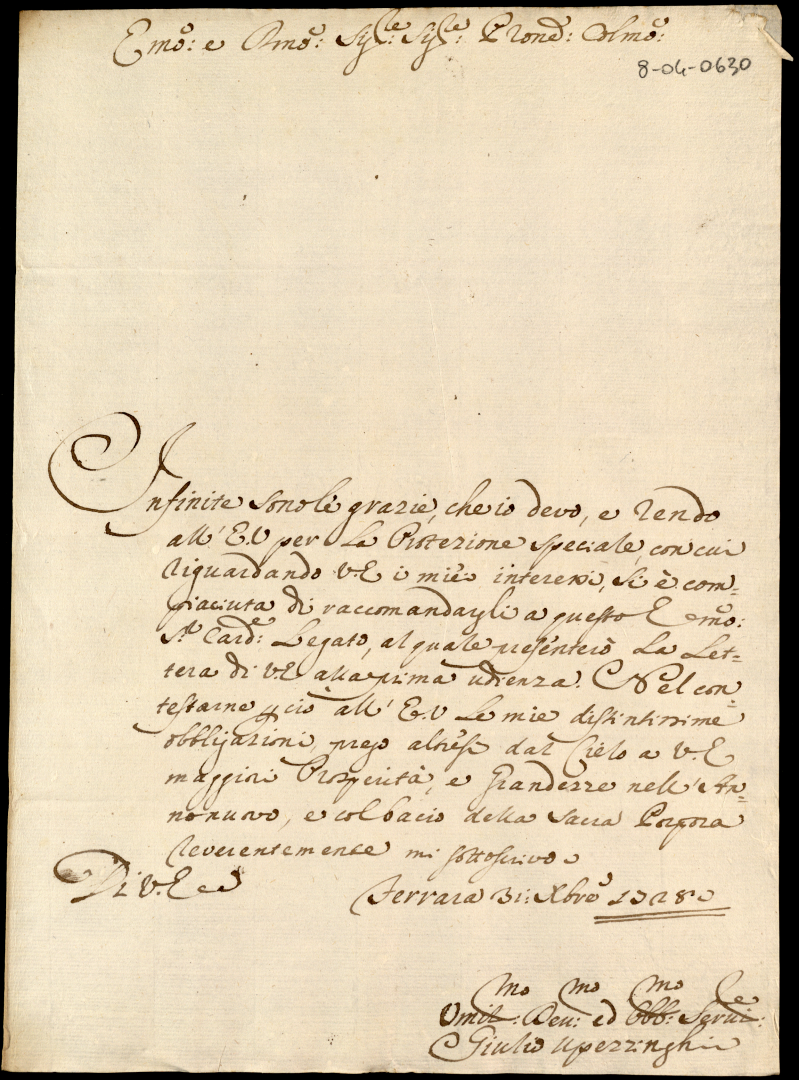 Emo: e Rmo: Sigre: Sigre: Prone: Colmo:
8-04-0630
Infinite sono le grazie, che io devo, e rendo
all' E.V per la Protezione speciale, con cui
riguardando V.E i miei interessi, si è com=
piaciuta di raccomandargli a questo Emo:
Sr. Card: Legato, al quale presenterò la Let=
tera di V.E alla prima udienza. Nel con=
testarne per ciò all' E.V le mie distintissime
obbligazioni, prego altresì dal Cielo a V.E
maggiori Prosperità, e Grandezze nell' An=
no nuovo, e col bacio della Sacra Porpora
reverentemente mi sottoscrivo
Di V.E
Ferrara 31: Xbre 1728
Umilmo: Devmo: ed Obbmo: Servre:
Giulio Uperzinghi